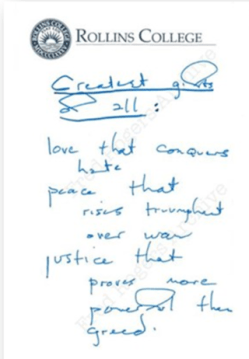 ROLLINS COLLEGE
Greatest gifts
of all:
love that conquers
hate
peace that
rises triumphant
over war
justice that
proves more
powerful than
greed.